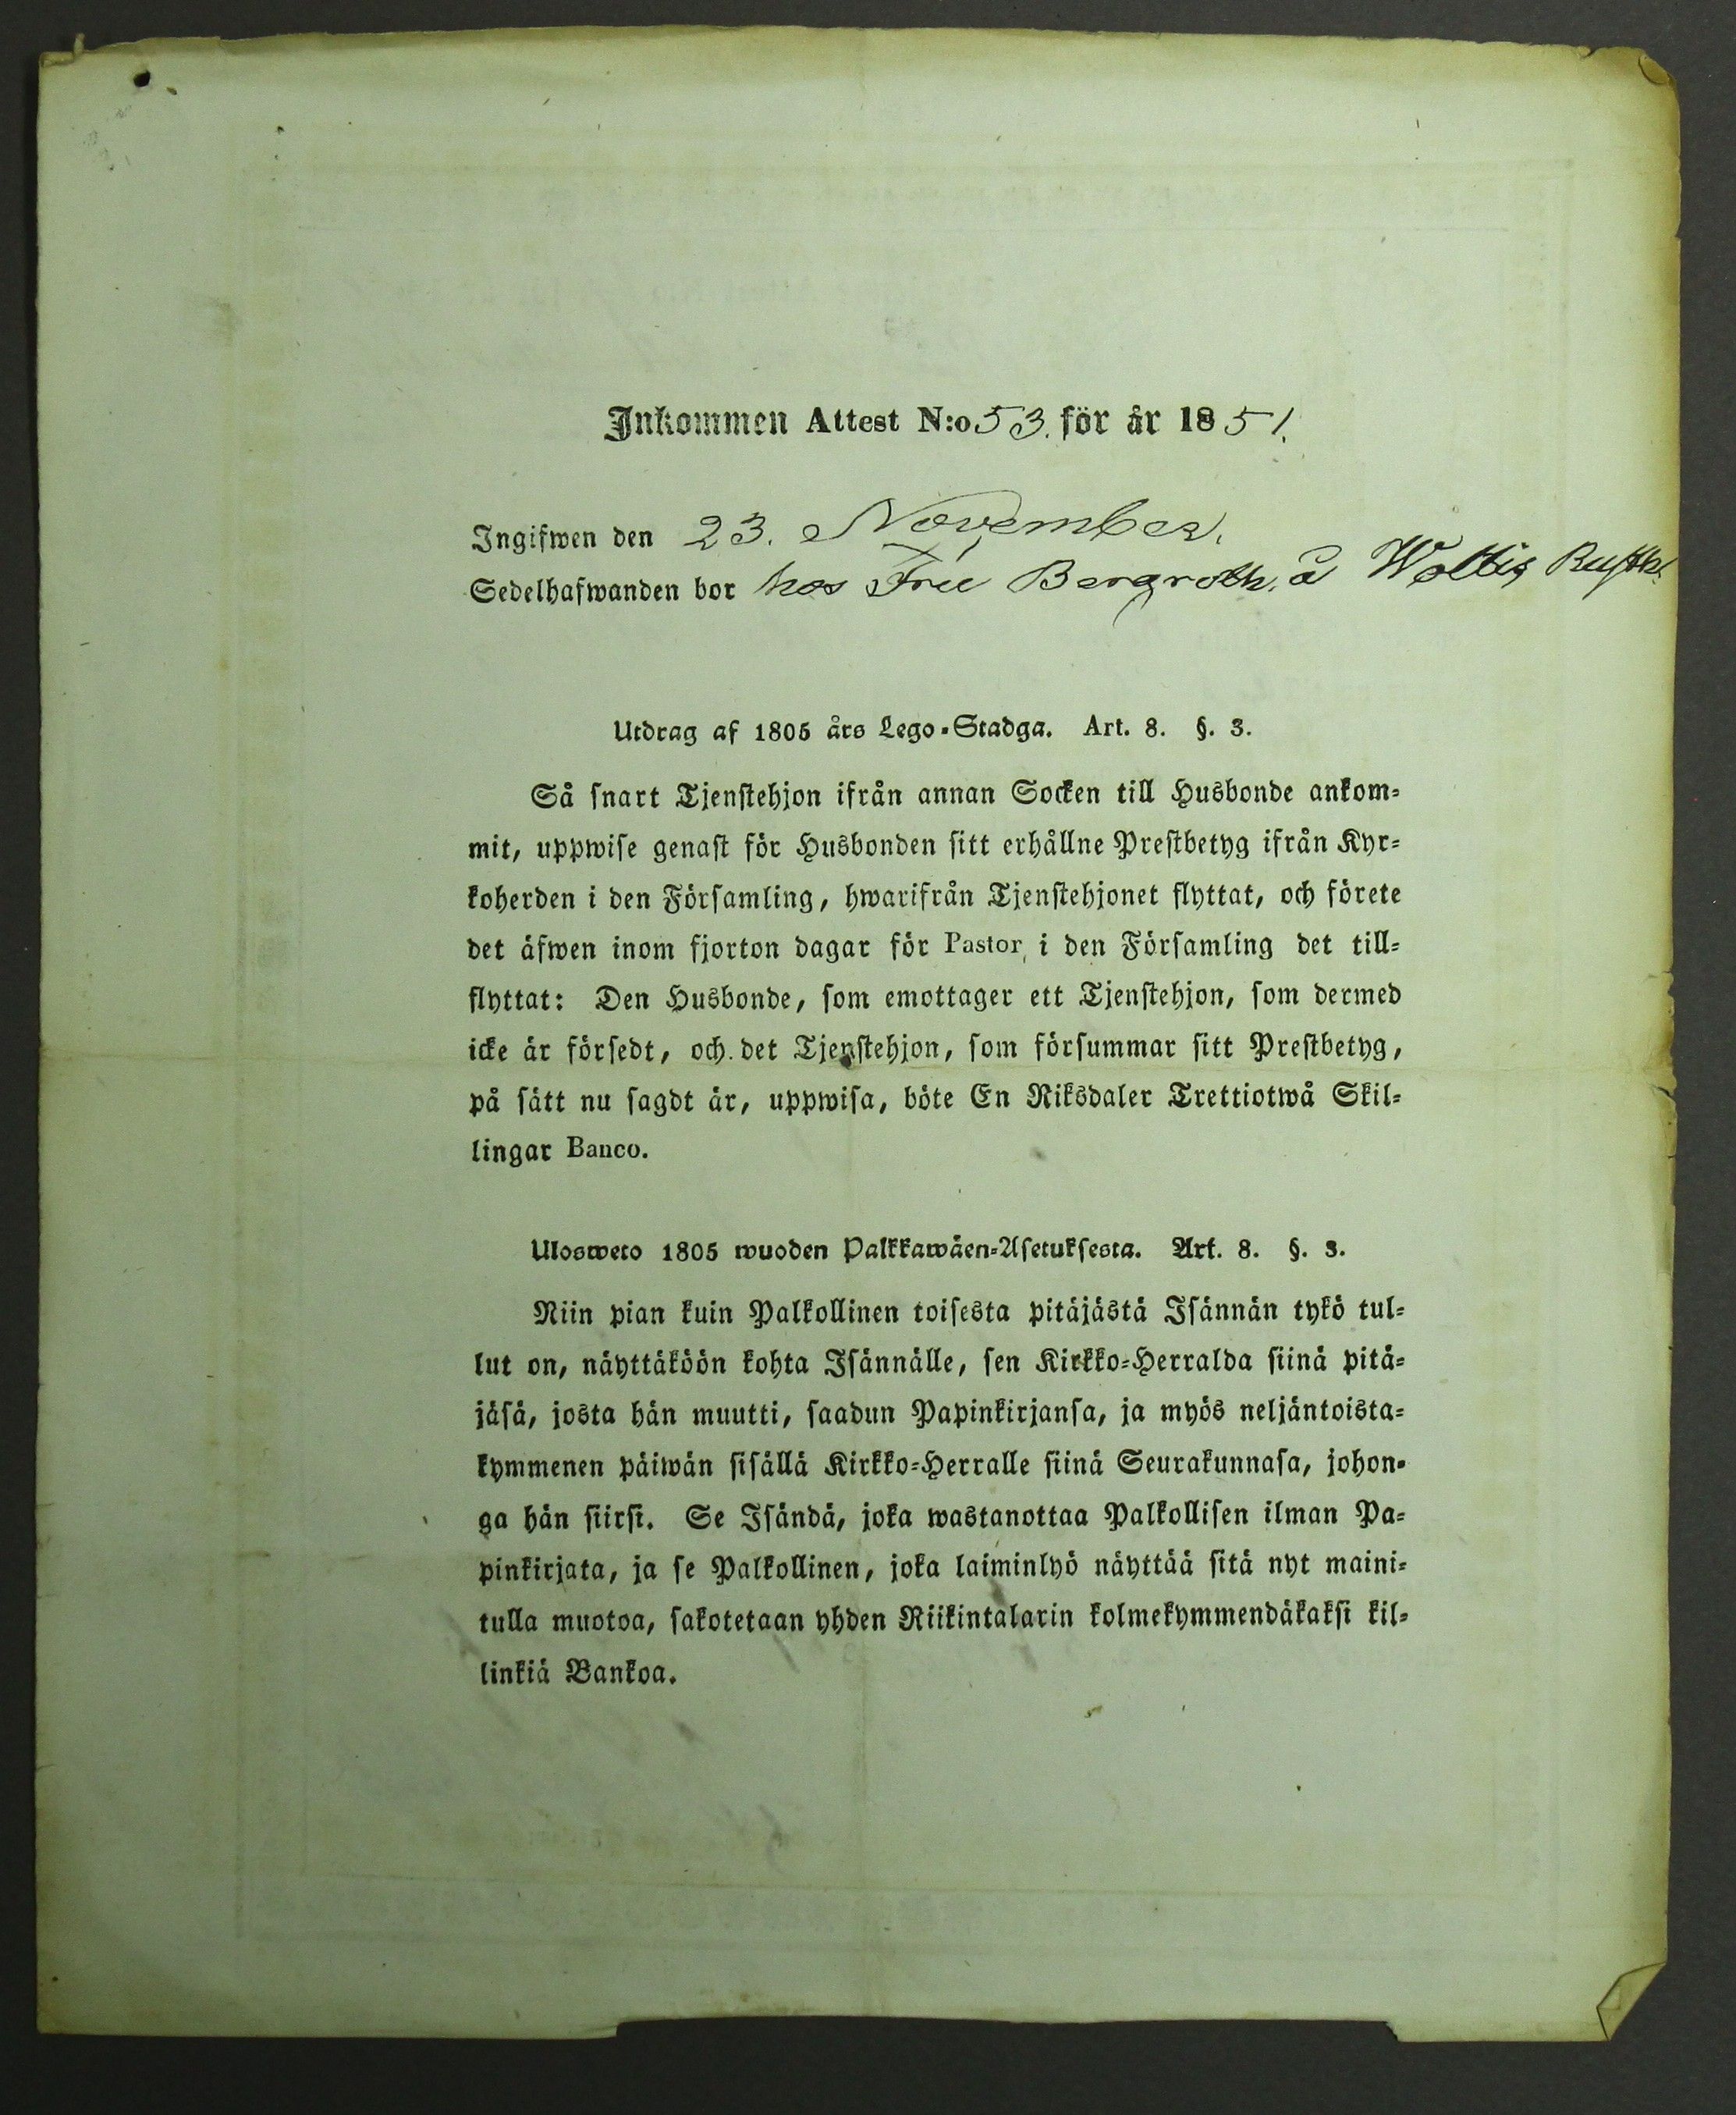 Inkommen Attest N:o 53. för år 1851.
Ingifwen den 23. November.
Sedelhafwanden bor hos Fru Bergroth. å Woltis Rusth.
Utdrag af 1805 års Lego-Stadga. Art. 8. §. 3.
Så snart Tjenstehjon ifrån annan Socken till Husbonde ankom-
mit, uppwise genast för Husbonden sitt erhållne Prestbetyg ifrån Kyr-
koherden i den Församling, hwarifrån Tjenstehjonet flyttat, och förete
det äfwen inom fjorton dagar för Pastor i den Församling det till-
flyttat: Den Husbonde, som emottager ett Tjenstehjon, som dermed
icke är försedt, och det Tjenstehjon, som försummar sitt Prestbetyg,
på sätt nu sagdt är, uppwisa, böte En Riksdaler Trettiotwå Skil-
lingar Banco.
Ulosweto 1805 wuoden Palkkawäen-Asetuksesta. Art. 8. §. 3.
Niin pian kuin Palkollinen toisesta pitäjästä Isännän tykö tul-
lut on, näyttäköön kohta Isännälle, sen Kirkko-Herralda siinä pitä-
jäsä, josta hän muutti, saadun Papinkirjansa, ja myös neljäntoista-
kymmenen päiwän sisällä Kirkko-Herralle siinä Seurakunnasa, johon-
ga hän siirsi. Se Isändä, joka wastanottaa Palkollisen ilman Pa-
pinkirjata, ja se Palkollinen, joka laiminlyö näyttää sitä nyt maini-
tulla muotoa, sakotetaan yhden Riikintalarin kolmekymmendäkaksi kil-
linkiä Bankoa.